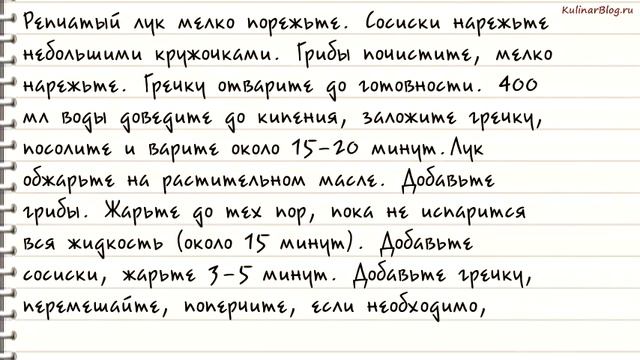 KulinarBlog.ru
Репчатый лук мелко порежьте. Сосиски нарежьте
небольшими кружочками. Грибы почистите, мелко
нарежьте. Гречку отварите до готовности. 400
мл воды доведите до кипения, заложите гречку,
посолите и варите около 15-20 минут.Лук
обжарьте на растительном масле. Добавьте
грибы. Жарьте до тех пор, пока не испарится
вся жидкость (около 15 минут). Добавьте
сосиски, жарьте 3-5 минут. Добавьте гречку,
перемешайте, поперчите, если необходимо,